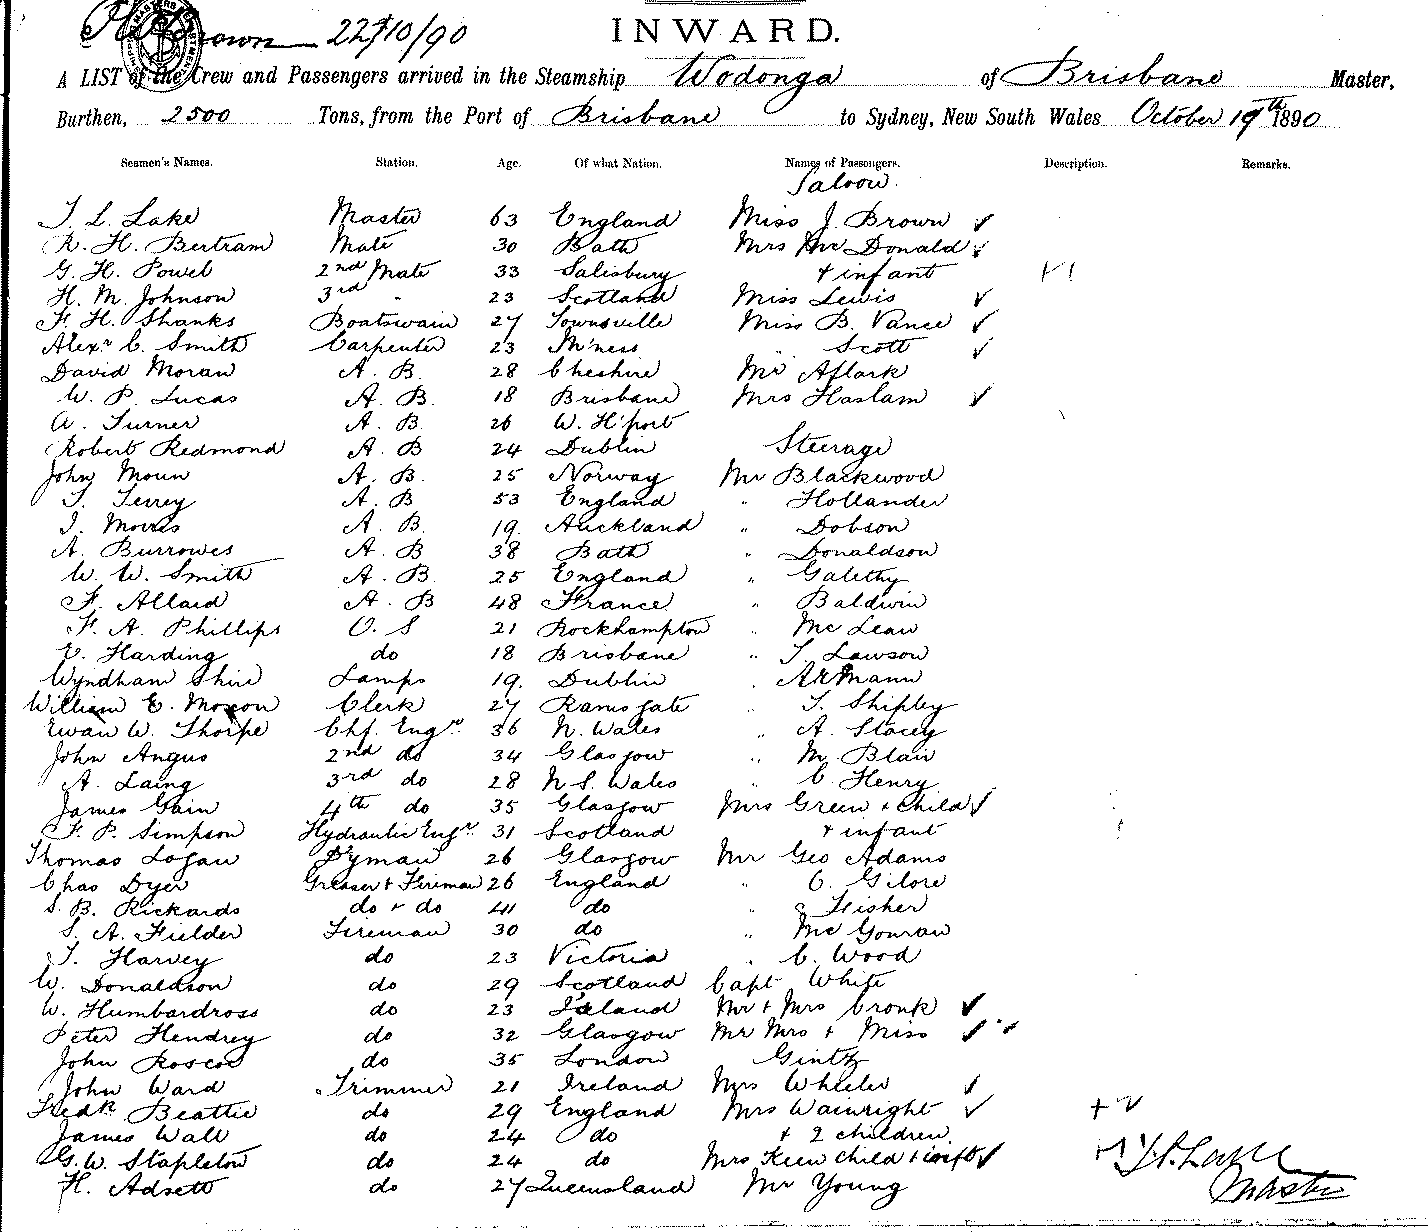 Brown 22/10/90
INWARD.
A LIST of the Crew and Passengers arrived in the Steamship Wodonga of Brisbane Master,
Burthen, 2500 Tons, from the Port of Brisbane to Sydney, New South Wales October 19th 1890
Seamen's Names. Station. Age. Of what Nation. Names of Passengers. Description. Remarks.
Saloon.
T. L. Lake Master 63 England Miss J. Brown
R. H. Bertram Mate 30 Bath Mrs Mc Donald
G. H. Powel 2nd Mate 33 Salisbury + infant
H. M. Johnson 3rd " 23 Scotland Miss Lewis
F. H. Shanks Boatswain 27 Townsville Miss B. Vance
Alexr C. Smith Carpenter 23 In'ness " Scott
David Moran A. B. 28 Cheshire Mr Aflark
W. P. Lucas A. B. 18 Brisbane Mrs Haslam
A. Turner A. B. 26 W. H'port
Robert Redmond A. B 24 Dublin Steerage
John Moun A. B. 25 Norway Mr Blackwood
T. Terrey A. B 53 England " Hollander
J. Morris A. B. 19. Auckland " Dobson
A. Burrowes A. B 38 Bath " Donaldson
W. W. Smith A. B. 25 England " Galethy
F. Allard A. B 48 France " Baldwin
F. A. Phillips O. S 21 Rockhampton " Mc Lean
E. Harding do 18 Brisbane " T Lawson
Wyndham Shire Lamps 19. Dublin " Artmann
William E. Moxon Clerk 27 Ramsgate " T. Shipley
Ewan W. Thorpe Chf. Engr. 36 N. Wales " A. Stacey
John Angus 2nd do 34 Glasgow " M. Blair
A. Laing 3rd do 28 N S. Wales " C. Henry
James Gain 4th do 35 Glasgow Mrs Green + child
F. P. Simpson Hydraulic Engr. 31 Scotland + infant
Thomas Logan 26 Glasgow Mr Geo Adams
Chas Dyer Greaser + Fireman 26 England " C. Gilore
S. B. Rickards do + do 41 do " Fisher
S. A. Fielder Fireman 30 do " Mc Gouran
T. Harvey do 23 Victoria " C. Wood
W. Donaldson do 29 Scotland Capt White
W. Humbardross do 23 Ireland Mr + Mrs Cronk
Peter Hendrey do 32 Glasgow Mr Mrs + Miss
John Roscoe do 35 London Gintz
John Ward Trimmer 21 Ireland Mrs Wheeler
Fredk Beattie do 29 England Mrs Wainright
James Wall do 24 do + 2 children
G. W. Stapleton do 24 do Mrs Keen child + inft
H. Adsett do 27 Queensland Mr Young
T. L. Lake
Master